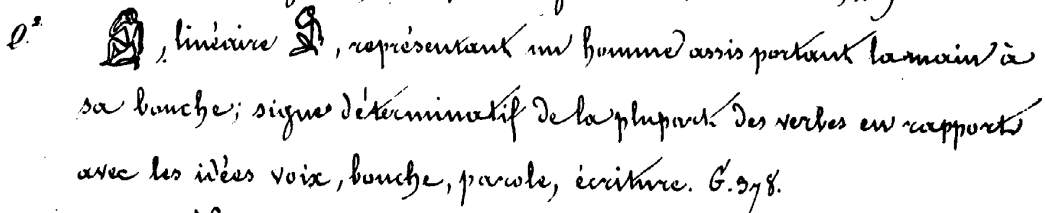 l.° 𓀁, linéaire 𓀁, représentant un homme assis portant la main à
sa bouche; signe déterminatif de la plupart des verbes en rapport
avec les idées voix, bouche, parole, écriture. G. 378.